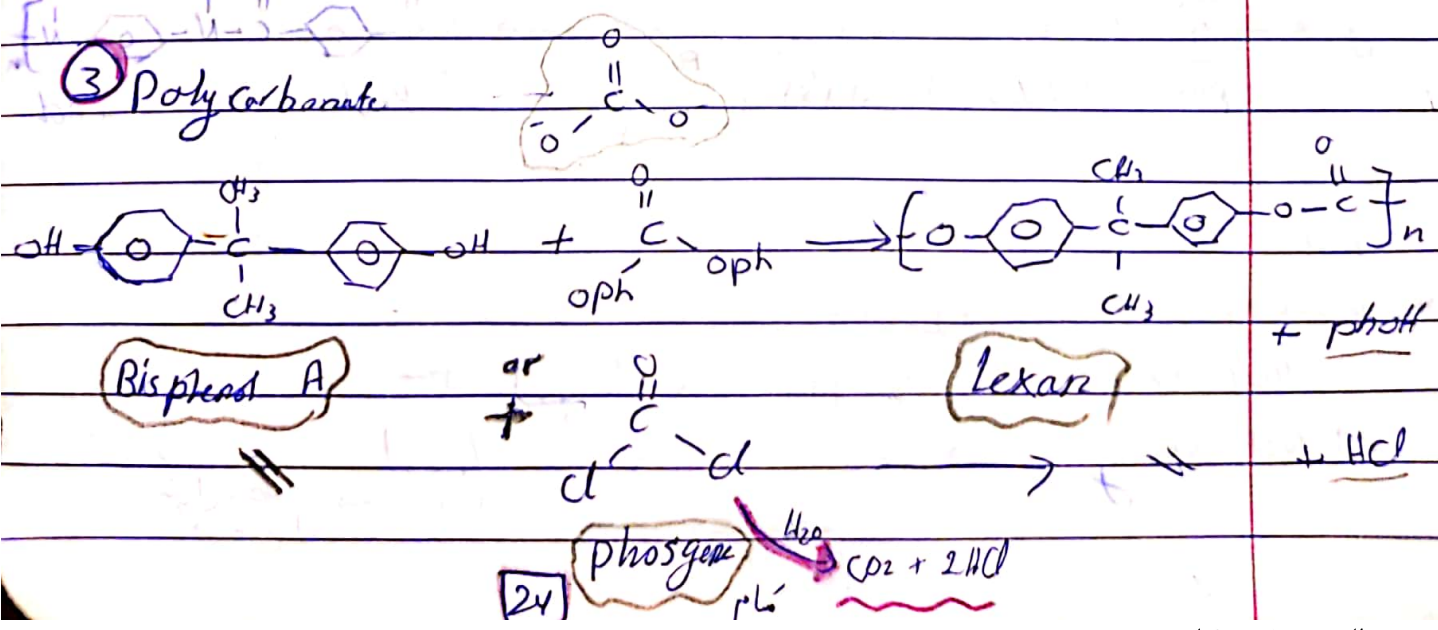 3 Polycarbonate
O
||
C
-O O
CH3 O CH3 O
OH C OH + C → [ O C O-C ]n
CH3 Oph Oph CH3
+ phoH
Bisphenol A or O Lexan
+ C
Cl Cl → + HCl
phosgene H2O CO2 + 2HCl
24